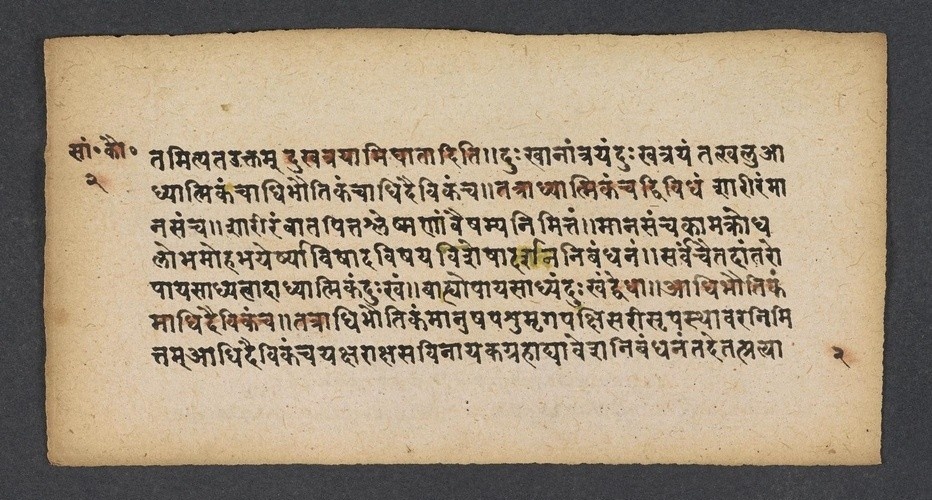 सां॰कौ॰
२
तमित्यतउक्तम् दुखत्रयाभिघातादिति॥दुःखानांत्रयंदुःखत्रयं तत्खलुआ
ध्यात्मिकंचाधिभौतिकंचाधिदैविकंच॥तत्राध्यात्मिकंचद्विविधं शारीरंमा
नसंच॥शारीरंवातपित्तश्लेष्मणांवैषम्यनिमित्तं॥मानसंचकामक्रोध
लोभमोहभयेर्ष्याविषादविषयविशेषादर्शननिबंधनं॥सर्वंचैतदांतरो
पायसाध्यत्वादाध्यात्मिकंदुःखं॥बाह्योपायसाध्यंदुःखंद्वेधा॥आधिभौतिकं
माधिदैविकंच॥तत्राधिभौतिकंमानुषपशुमृगपक्षिसरीसृपस्थावरनिमि
त्तम्आधिदैविकंचयक्षराक्षसविनायकग्रहाद्यावेशनिबंधनंतदेतत्प्रत्या
२